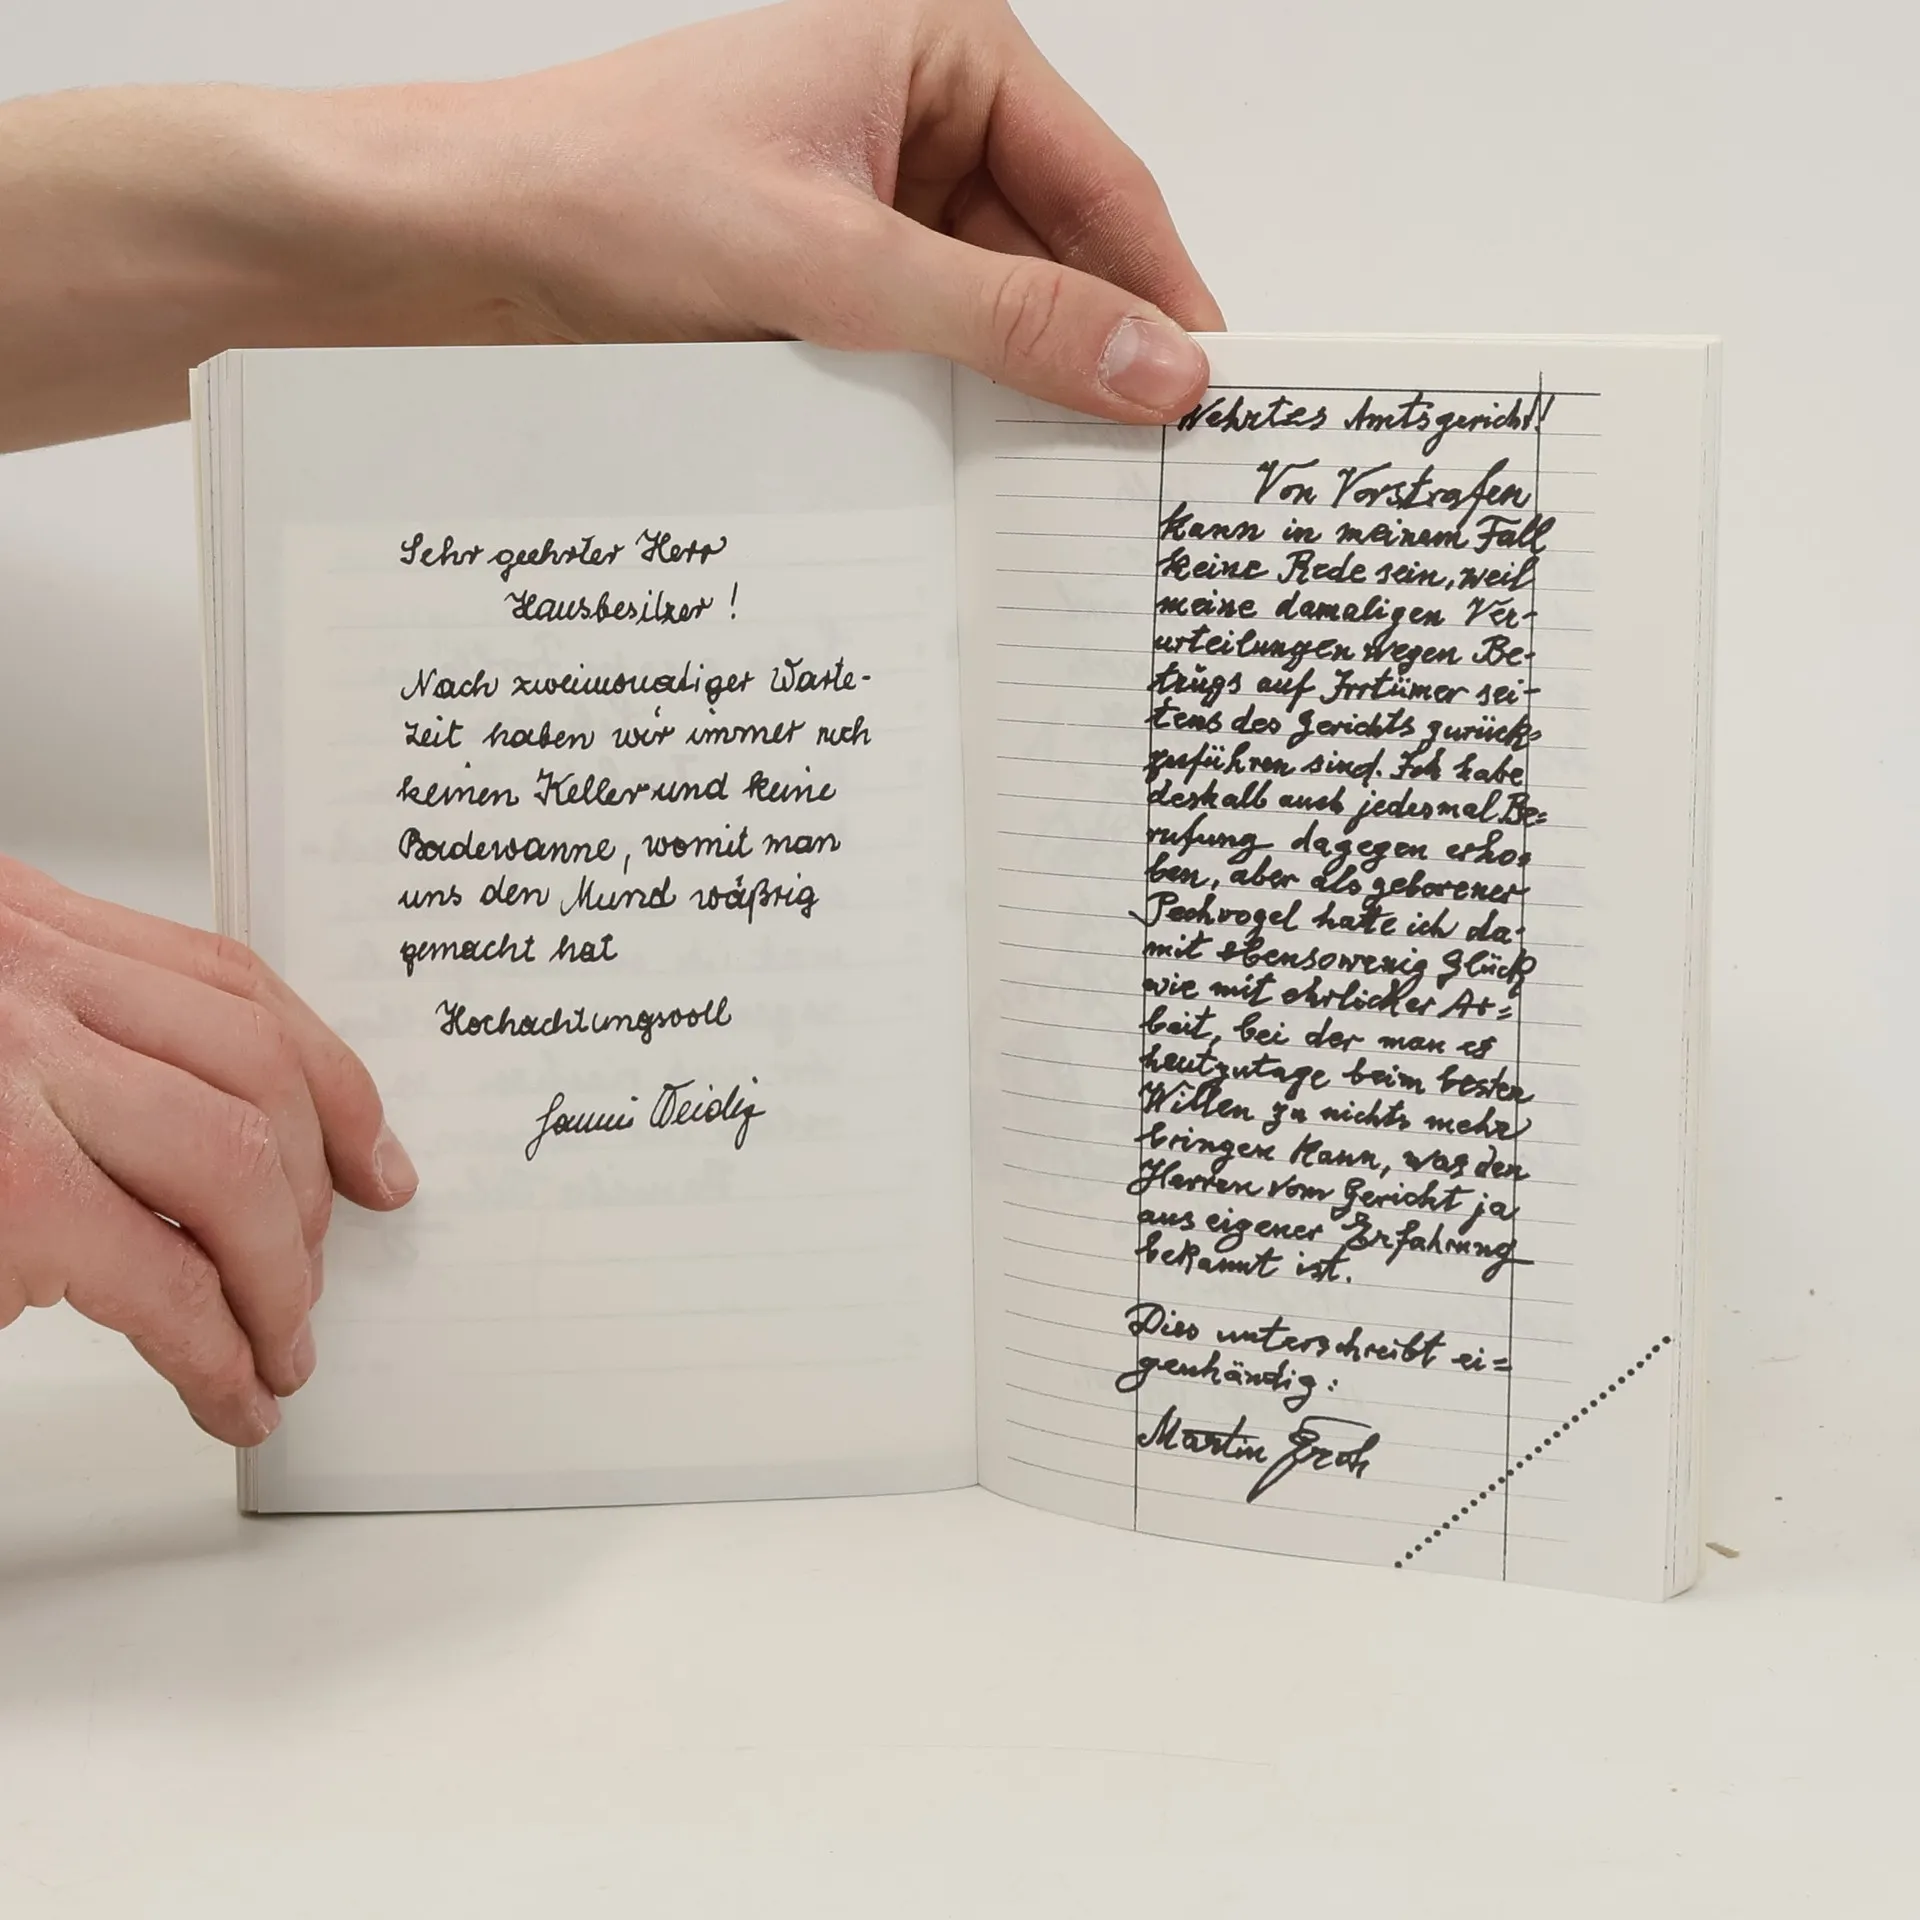 Sehr geehrter Herr
Hausbesitzer !
Nach zweimonatiger Warte-
zeit haben wir immer noch
keinen Keller und keine
Badewanne, womit man
uns den Mund wäßrig
gemacht hat
Hochachtungsvoll
Weidig
Wehrtes Amtsgericht!
Von Vorstrafen
kann in meinem Fall
keine Rede sein, weil
meine damaligen Ver-
urteilungen wegen Be-
trügs auf Irrtümer sei-
tens des Gerichts zurück-
zuführen sind. Ich habe
deshalb auch jedesmal Be=
rufung dagegen erho=
ben, aber als geborener
Pechvogel hatte ich da-
mit ebensowenig Glück
wie mit ehrlicher Ar=
beit, bei der man es
heutzutage beim besten
Willen zu nichts mehr
bringen kann, was den
Herren vom Gericht ja
aus eigener Erfahrung
bekannt ist.
Dies unterschreibt ei=
genhändig:
Martin Groh